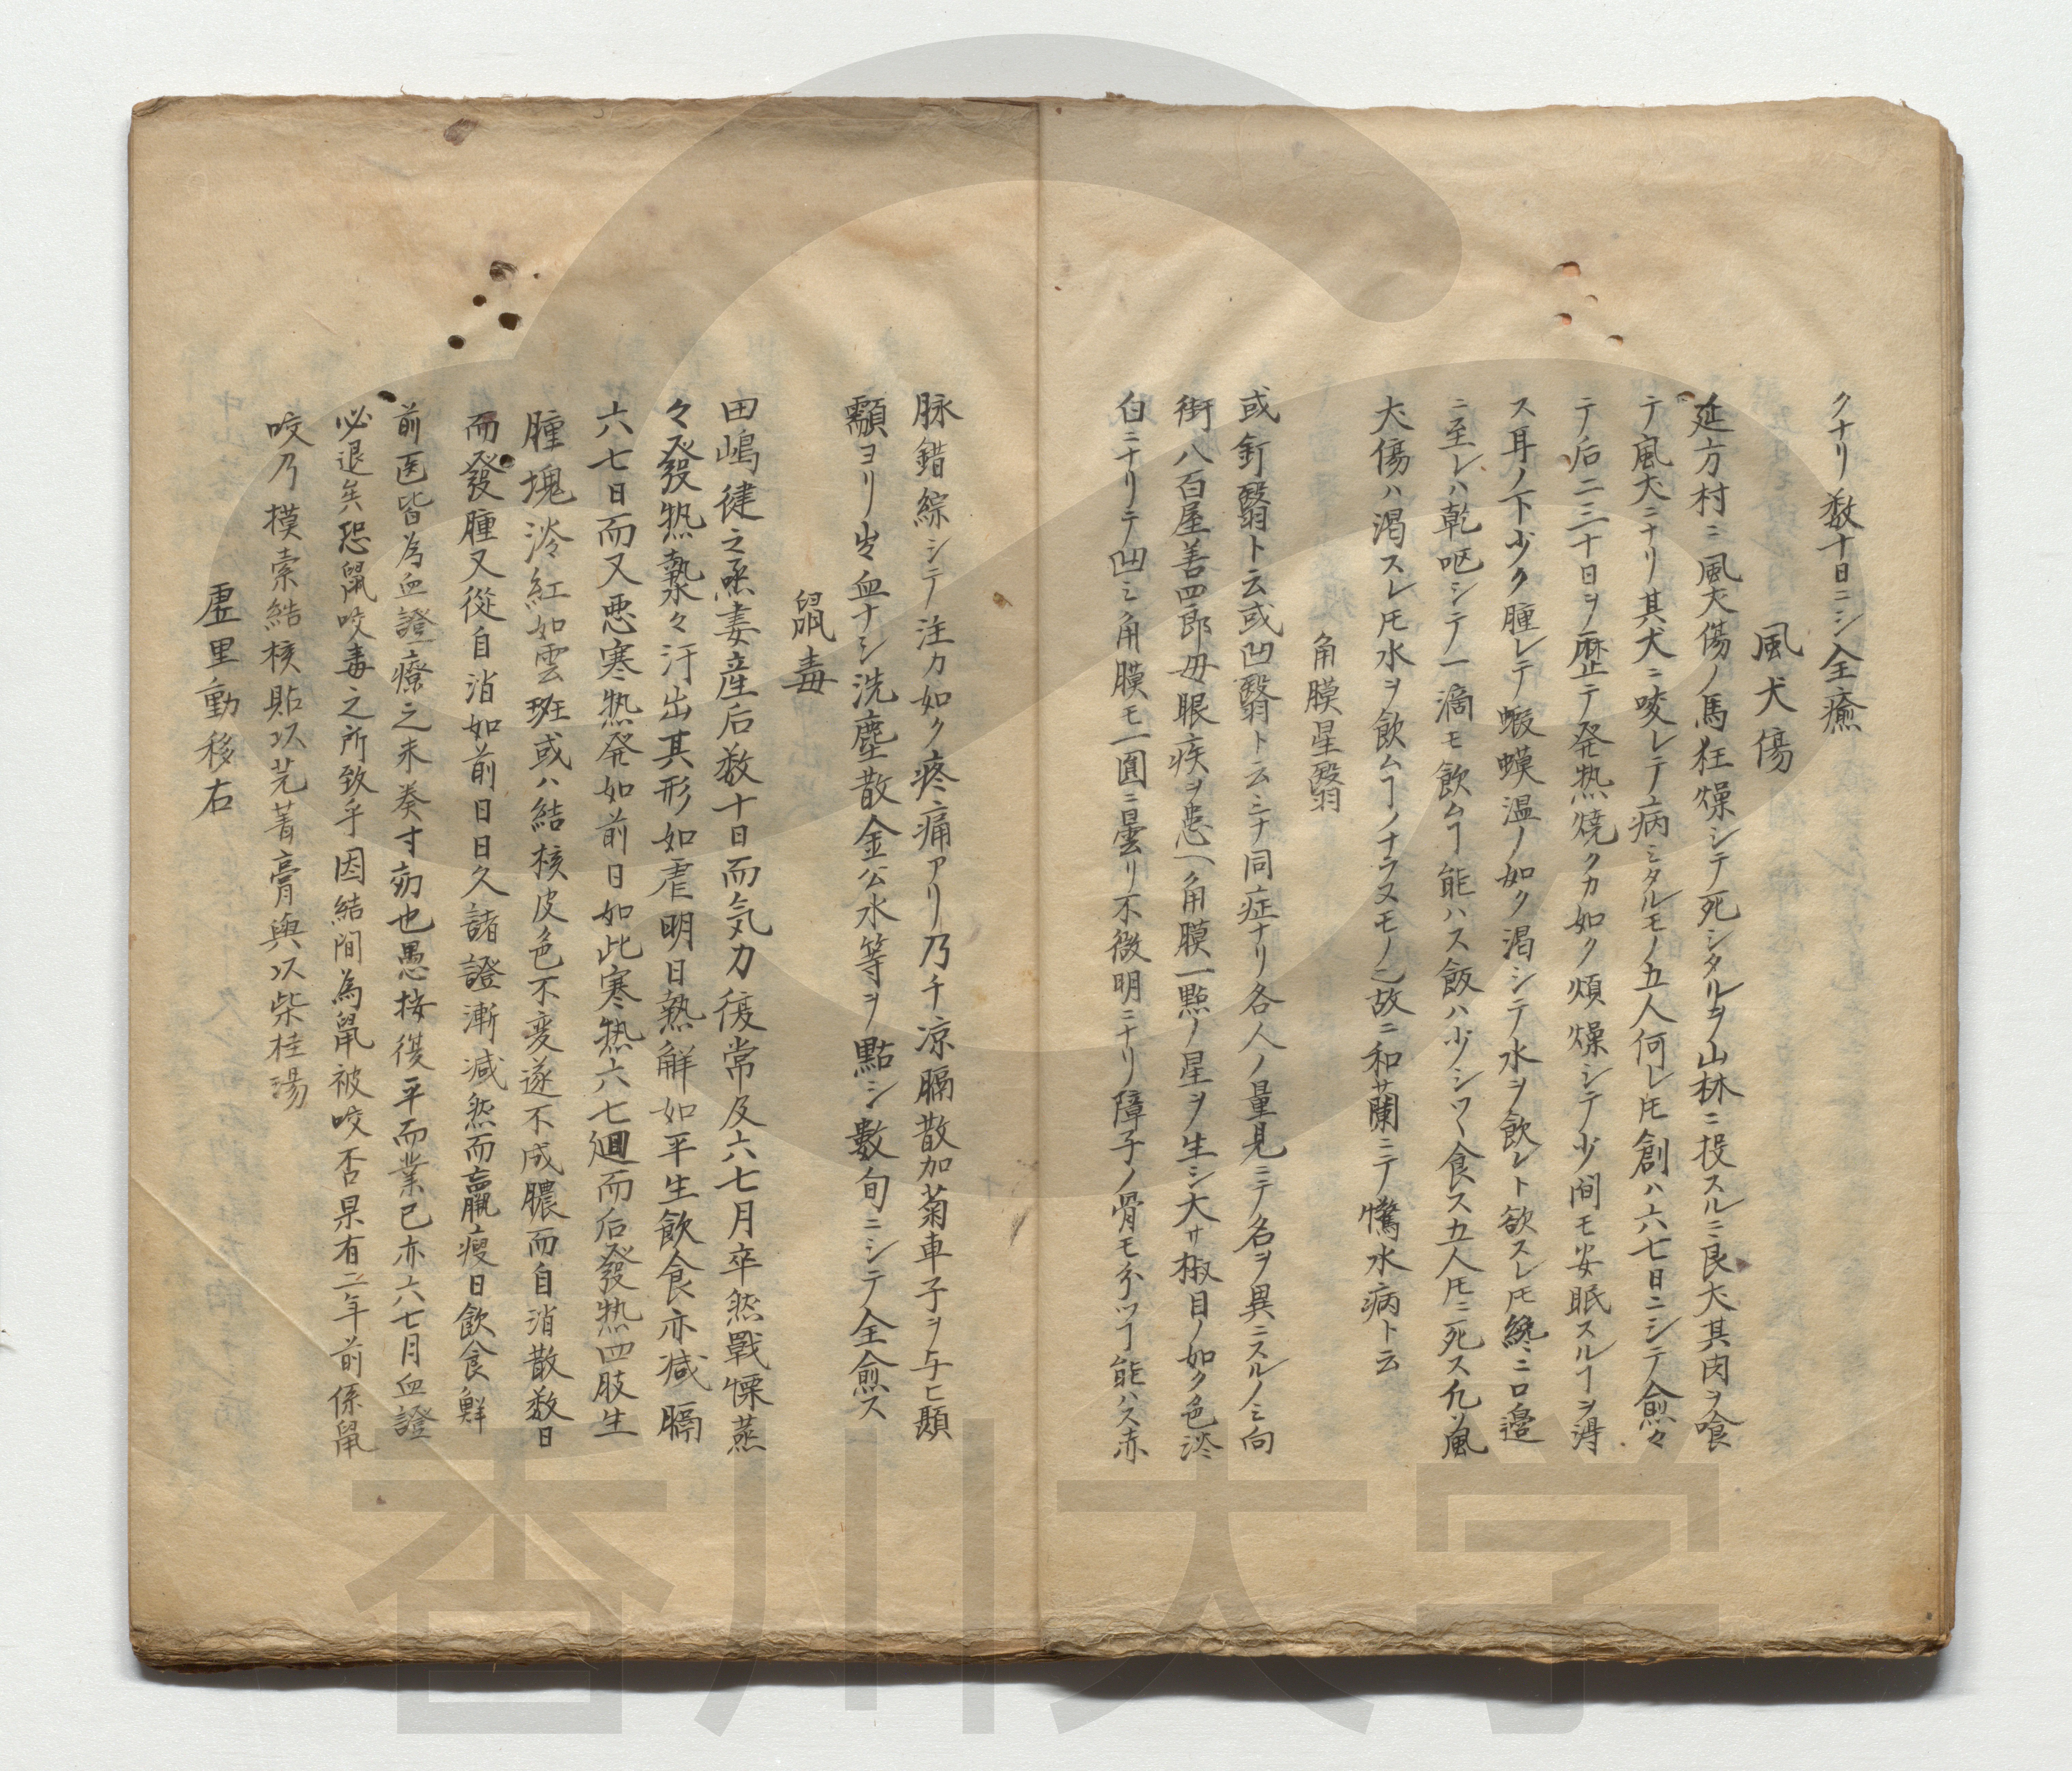 クナリ数十日ニシ全癒
風犬傷
延方村ニ風犬傷ノ馬狂燥シテ死シタルヲ山林ニ投スルニ良犬其肉ヲ喰
テ風犬ニナリ其犬ニ咬レテ病ミタルモノ五人何レ𪜈創ハ六七日ニシテ愈々
テ后二三十日ヲ歴テ発熱焼クカ如ク煩燥シテ少間モ安眠スルヿヲ得
ス耳ノ下少ク腫レテ蝦蟆温ノ如ク渇シテ水ヲ飲レト欲スレ𪜈終ニ口邉
ニ至レハ乾呕シテ一滴モ飲ムヿ能ハス飯ハ少シツヽ食ス五人𪜈ニ死ス凡風
犬傷ハ渇スレ𪜈水ヲ飲ムヿノナラヌモノ也故ニ和蘭ニテ驚水病ト云
角膜星翳
或釘翳ト云或凹翳ト云ミナ同症ナリ各人ノ量見ニテ名ヲ異ニスルノミ向
街八百屋善四郎毋眼疾ヲ患ヘ角膜一點ノ星ヲ生シ大サ椒目ノ如ク色淡
白ニナリテ凹ミ角膜モ一圓ニ曇リ不微明ニナリ障子ノ骨モ分ツヿ能ハス赤
脉錯綜シテ注カ如ク疼痛アリ乃チ凉膈散加菊車子ヲ与ヒ顳
顬ヨリ出血ナシ洗塵散金公水等ヲ點シ數旬ニシテ全愈ス
鼠毒
田嶋徤之烝妻産后数十日而気力復常及六七月卒然戰慄蒸
々發熱漐々汗出其形如虐明日熱解如平生飲食亦减膈
六七日而又悪寒熱発如前日如此寒熱六七廻而后發热四肢生
腫塊淡紅如雲斑或ハ結核皮色不変遂不成膿而自消散数日
而發腫又從自消如前日日久諸證漸减然而羸痩日飲食鮮
前医皆為血證療之未奏寸効也愚按復平而業已亦六七月血證
必退矣恐鼠咬毒之所致乎因結間為鼠被咬否果有二年前係鼠
咬乃摸索結核貼以芫菁膏與以柴桂湯
虚里動移右